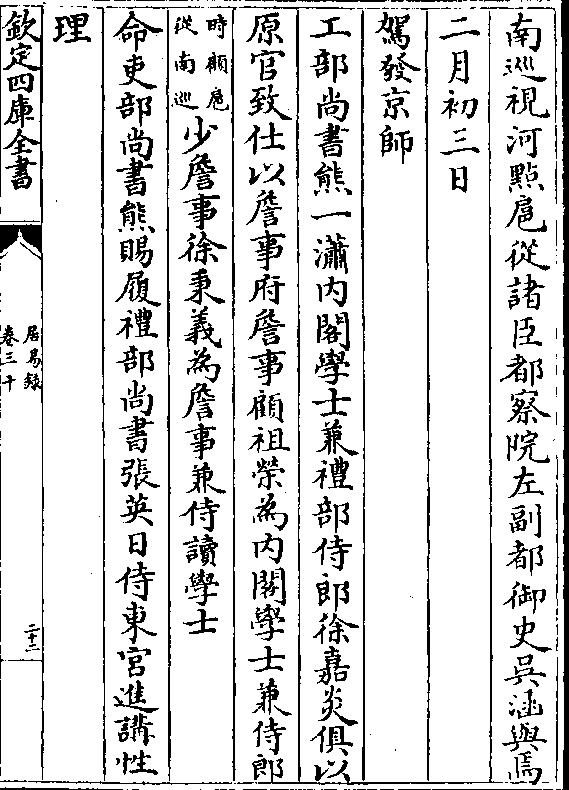 南巡視河點扈從諸臣都察院左副都御史吳涵與焉
二月初三日
駕發京師
工部尚書熊一瀟内閣學士兼禮部侍郎徐嘉炎俱以
原官致仕以詹事府詹事顧祖榮為内閣學士兼侍郎
時顧扈
從南巡
少詹事徐秉義為詹事兼侍讀學士
命吏部尚書熊賜履禮部尚書張英日侍東宮進講性
理
欽定四庫全書
居易錄
卷三十
二十二